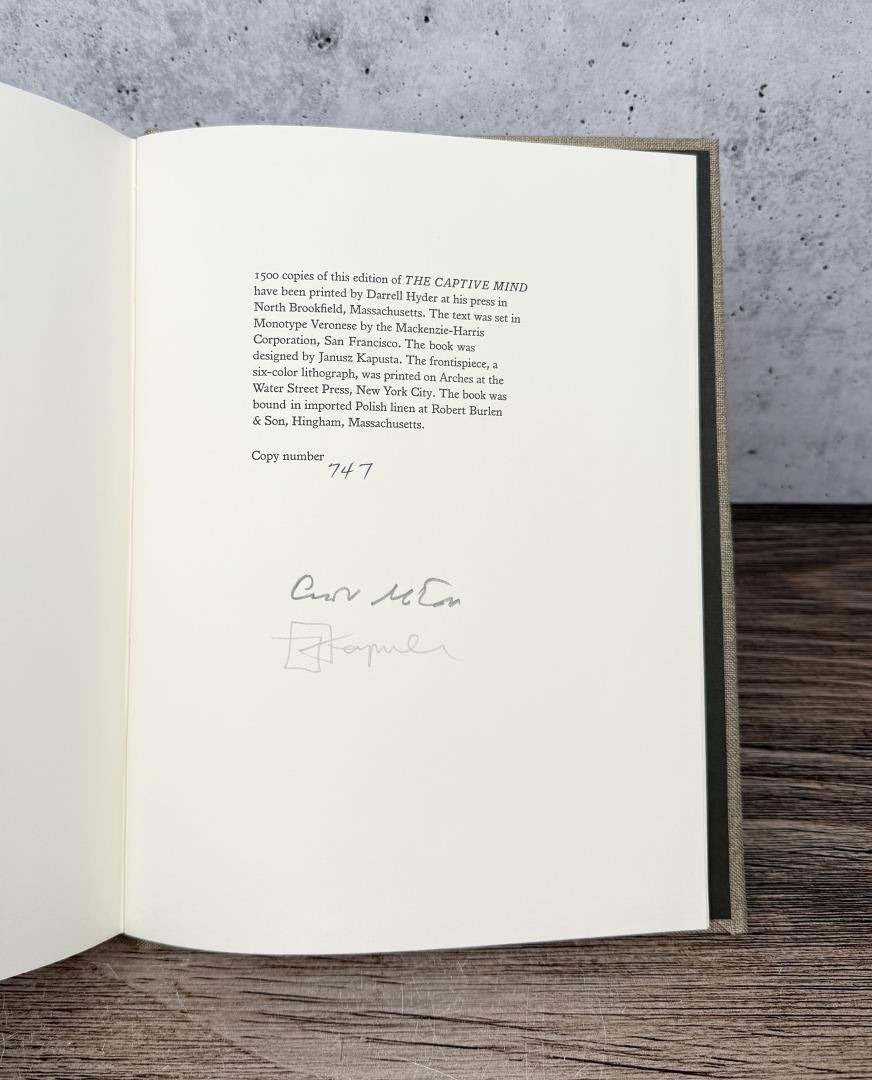 1500 copies of this edition of THE CAPTIVE MIND
have been printed by Darrell Hyder at his press in
North Brookfield, Massachusetts. The text was set in
Monotype Veronese by the Mackenzie-Harris
Corporation, San Francisco. The book was
designed by Janusz Kapusta. The frontispiece, a
six-color lithograph, was printed on Arches at the
Water Street Press, New York City. The book was
bound in imported Polish linen at Robert Burlen
& Son, Hingham, Massachusetts.
Copy number
747